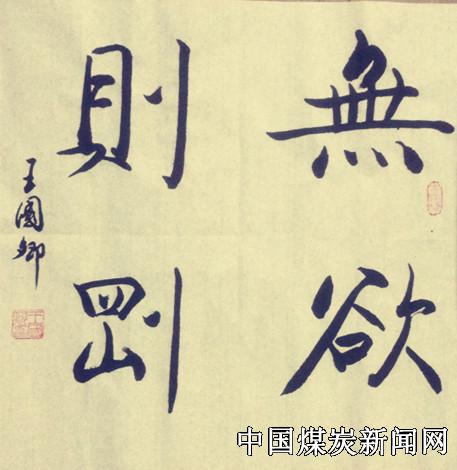 無欲
則剛
王園卿
中国煤炭新闻网